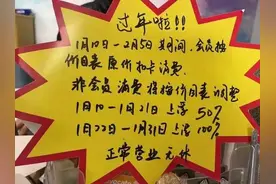 过年啦!!
1月10日-2月5日期间,会员按
价目表原价扣卡消费.
非会员消费 将按价目表调整
1月10-1月21日上浮50%
1月22日-1月31日上浮100%
正常营业无休